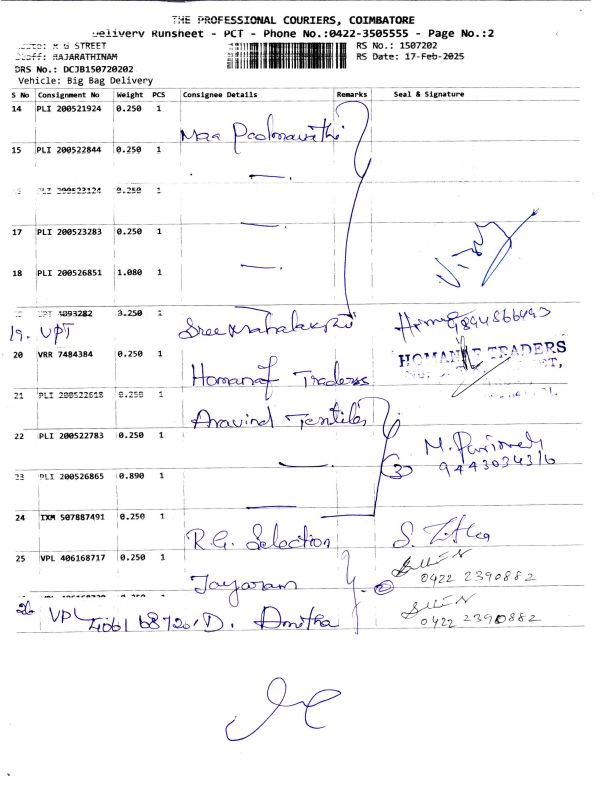 THE PROFESSIONAL COURIERS, COIMBATORE
Delivery Runsheet - PCT - Phone No.:0422-3505555 - Page No.:2
Route: R G STREET
RS No.: 1507202
Staff: RAJARATHINAM
RS Date: 17-Feb-2025
DRS No.: DCJB150720202
Vehicle: Big Bag Delivery
S No Consignment No Weight PCS Consignee Details Remarks Seal & Signature
14 PLI 200521924 0.250 1 Maa Padmavathi
15 PLI 200522844 0.250 1
16 PLI 200523124 0.250 1
17 PLI 200523283 0.250 1
18 PLI 200526851 1.080 1
19 UPT 4093282 3.250 1 Sree Mahalakshmi
19. UPT
20 VRR 7484384 0.250 1 Homanaf Traders HOMANAF TRADERS
21 PLI 200522618 0.250 1 Aravind Textiles
22 PLI 200522783 0.250 1 3 9443034316
23 PLI 200526865 0.890 1
24 IXM 507887491 0.250 1 R.G. Selection
25 VPL 406168717 0.250 1 Jayaram 2 0422 2390882
26 VPL 406168720 D. Amitha 0422 2390882